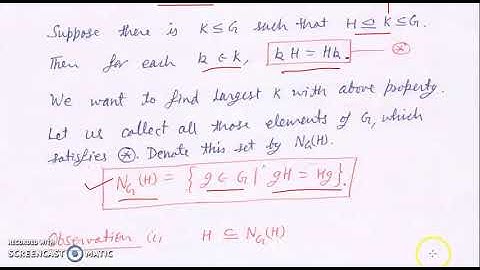 Suppose there is K ≤ G such that H ⊴ K ≤ G.
Then for each k ∈ K, kH = Hk. ⊛
We want to find largest K with above property.
Let us collect all those elements of G, which
satisfies ⊛. Denote this set by N_G(H).
N_G(H) = { g ∈ G | gH = Hg }.
Observation i, H ⊆ N_G(H)
RECORDED WITH
SCREENCAST MATIC